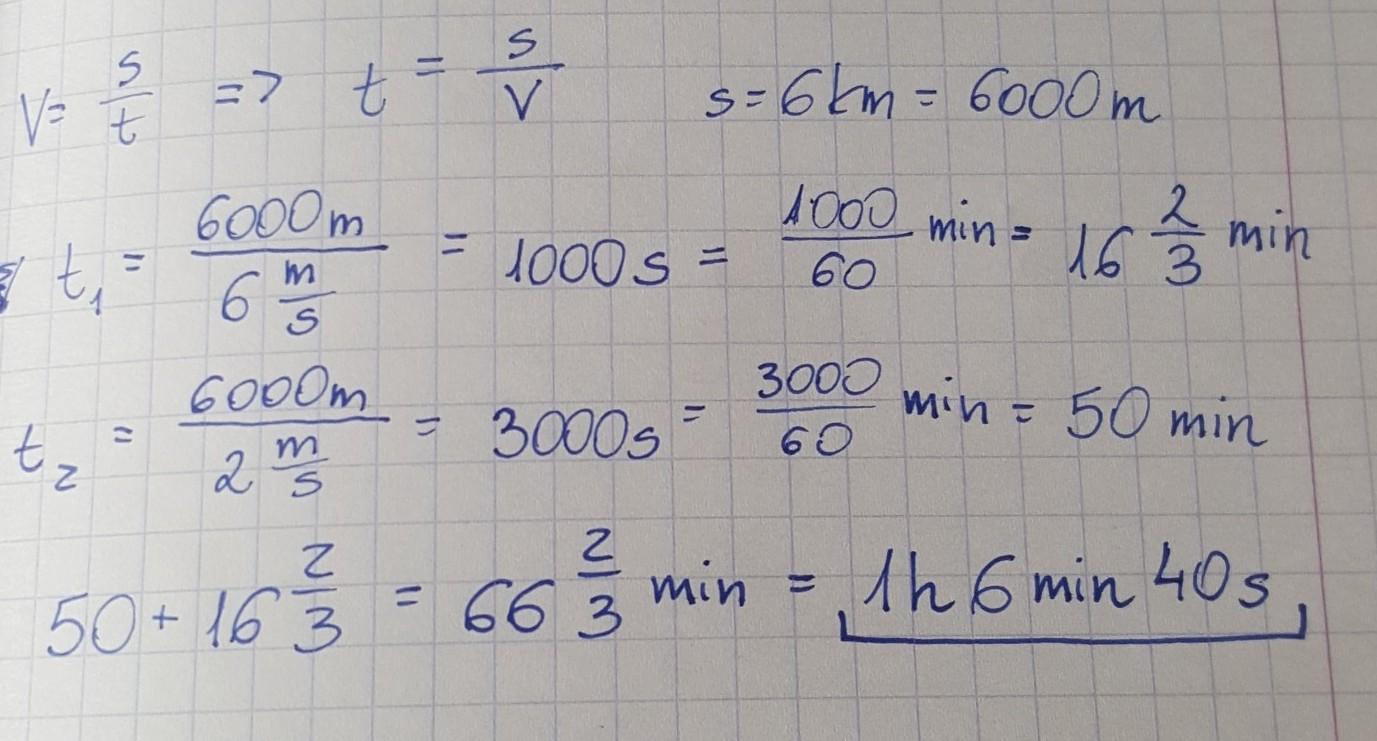 V = s/t => t = s/V s = 6km = 6000m
t₁ = 6000m / 6 m/s = 1000s = 1000/60 min = 16 2/3 min
t₂ = 6000m / 2 m/s = 3000s = 3000/60 min = 50 min
50 + 16 2/3 = 66 2/3 min = 1h 6 min 40s